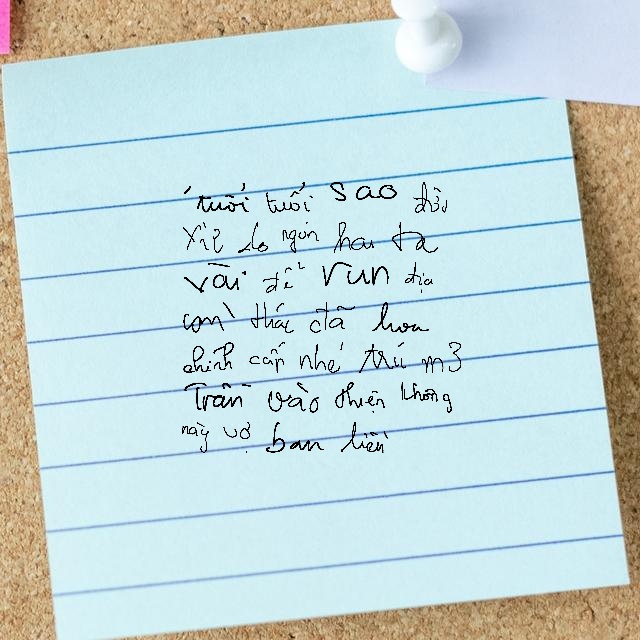 tuổi tuổi sao đời
do ngón hai ta
vài để run địa
còn thác đã hoa
chính cấp nhé trú m3
Trần vào thiện không
này vợ ban liền